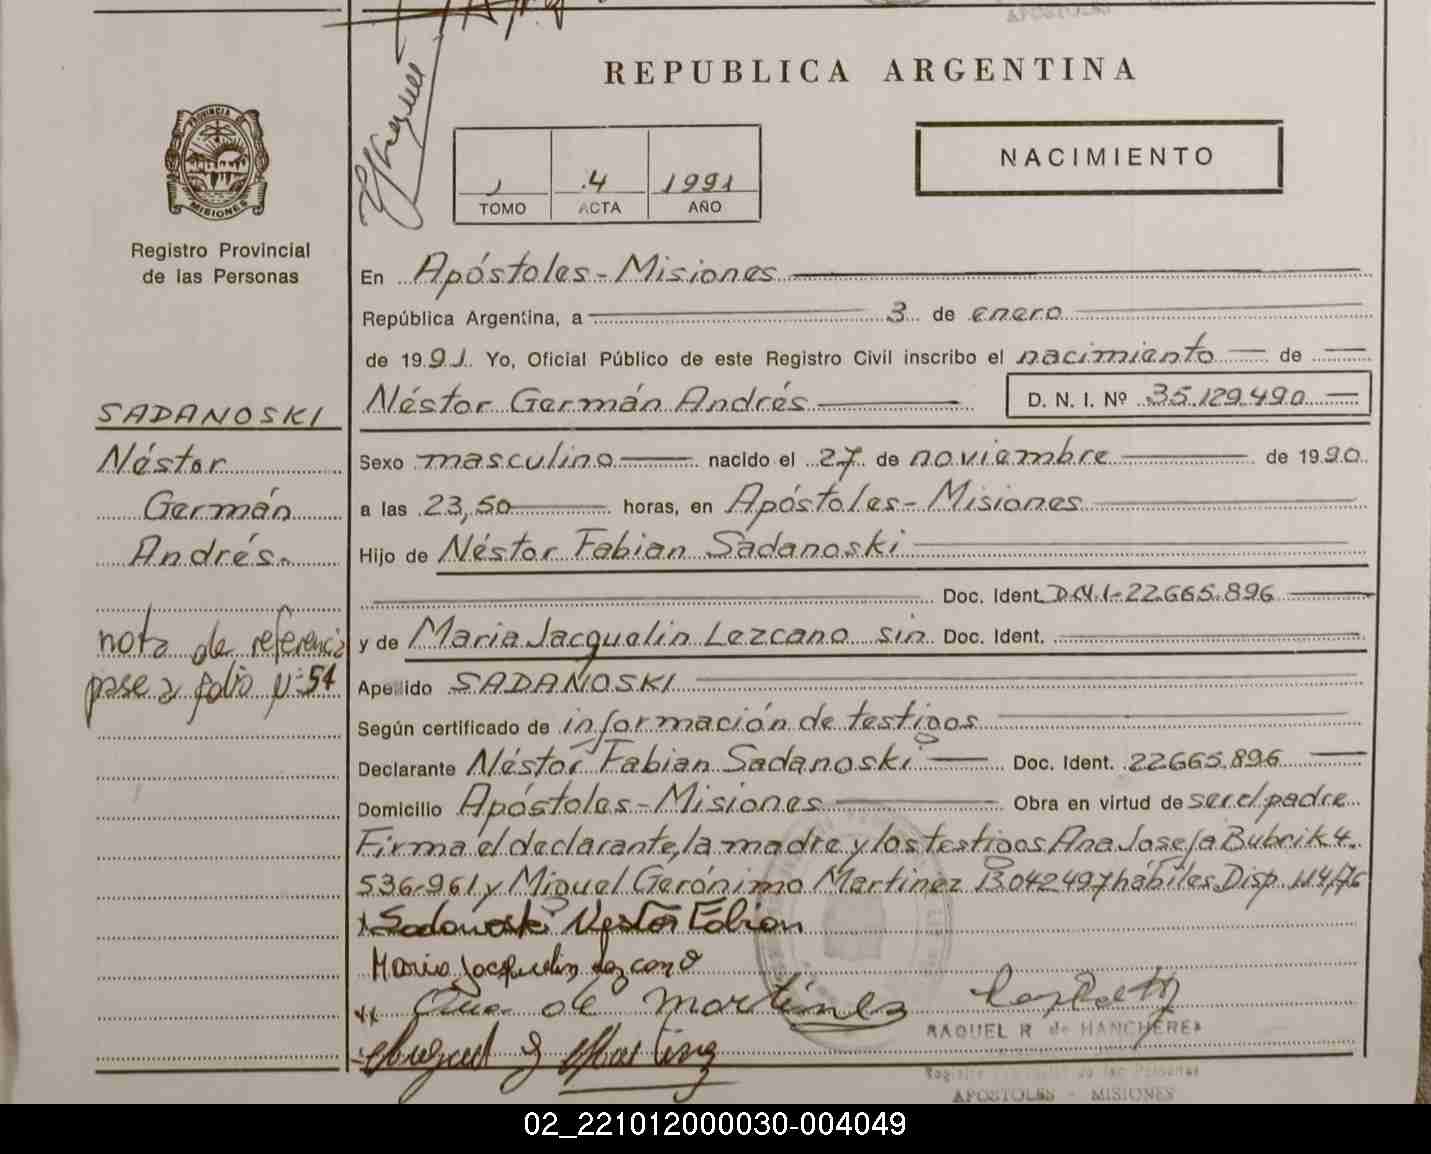 REPUBLICA ARGENTINA
PROVINCIA DE
MISIONES
Registro Provincial
de las Personas
1 4 1991
TOMO ACTA AÑO
NACIMIENTO
En Apóstoles - Misiones
República Argentina, a 3 de enero
de 1991. Yo, Oficial Público de este Registro Civil inscribo el nacimiento de
Néstor Germán Andrés D. N. I. Nº 35.129.490
SADANOSKI
Néstor
Germán
Andrés.
nota de referencia
pase a folio Nº 54
Sexo masculino nacido el 27 de noviembre de 1990
a las 23,50 horas, en Apóstoles - Misiones
Hijo de Néstor Fabian Sadanoski
Doc. Ident. D.N.I - 22.665.896
y de Maria Jacquelin Lezcano sin Doc. Ident.
Apellido SADANOSKI
Según certificado de información de testigos
Declarante Néstor Fabian Sadanoski Doc. Ident. 22.665.896
Domicilio Apóstoles - Misiones Obra en virtud de ser el padre
Firma el declarante, la madre y los testigos Ana Josefa Bubrik 4.
536.961 y Miguel Gerónimo Martinez 13042497 hábiles Disp. 114/76
Sadanoski Nestor Fabian
Maria Jacquelin Lezcano
Ana de Martinez
Miguel G Martinez
RAQUEL R de HANCHEREA
Registro Provincial de las Personas
APOSTOLES - MISIONES
02_221012000030-004049